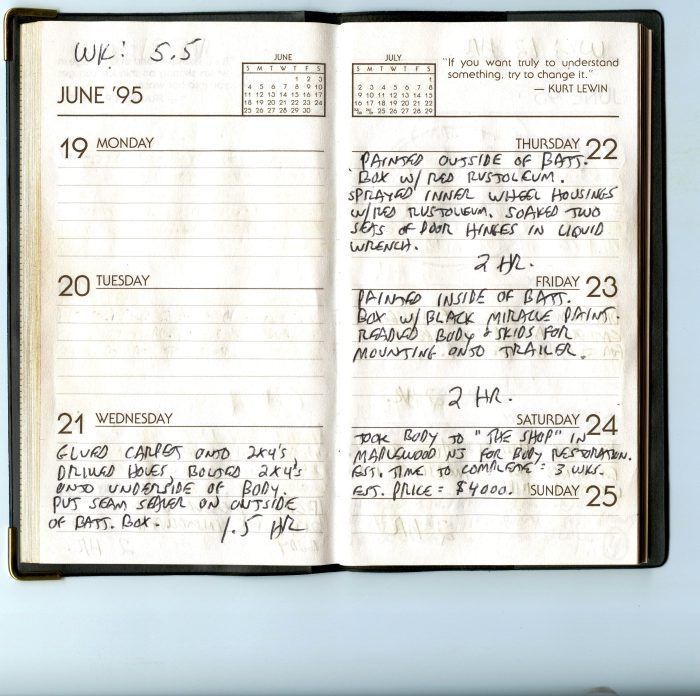 WK: 5.5
JUNE '95
JUNE
S M T W T F S
1 2 3
4 5 6 7 8 9 10
11 12 13 14 15 16 17
18 19 20 21 22 23 24
25 26 27 28 29 30
19 MONDAY
20 TUESDAY
21 WEDNESDAY
GLUED CARPET ONTO 2X4'S,
DRILLED HOLES, BOLTED 2X4'S
ONTO UNDERSIDE OF BODY.
PUT SEAM SEALER ON OUTSIDE
OF BATT. BOX. 1.5 HR
JULY
S M T W T F S
1
2 3 4 5 6 7 8
9 10 11 12 13 14 15
16 17 18 19 20 21 22
23/30 24/31 25 26 27 28 29
"If you want truly to understand
something, try to change it."
— KURT LEWIN
THURSDAY 22
PAINTED OUTSIDE OF BATT.
BOX W/ RED RUSTOLEUM.
SPRAYED INNER WHEEL HOUSINGS
W/RED RUSTOLEUM. SOAKED TWO
SETS OF DOOR HINGES IN LIQUID
WRENCH.
2 HR.
FRIDAY 23
PAINTED INSIDE OF BATT.
BOX W/ BLACK MIRACLE PAINT.
READIED BODY & SKIDS FOR
MOUNTING ONTO TRAILER.
2 HR.
SATURDAY 24
TOOK BODY TO "THE SHOP" IN
MAPLEWOOD NJ FOR BODY RESTORATION.
EST. TIME TO COMPLETE: 3 WKS.
EST. PRICE = $4000. SUNDAY 25